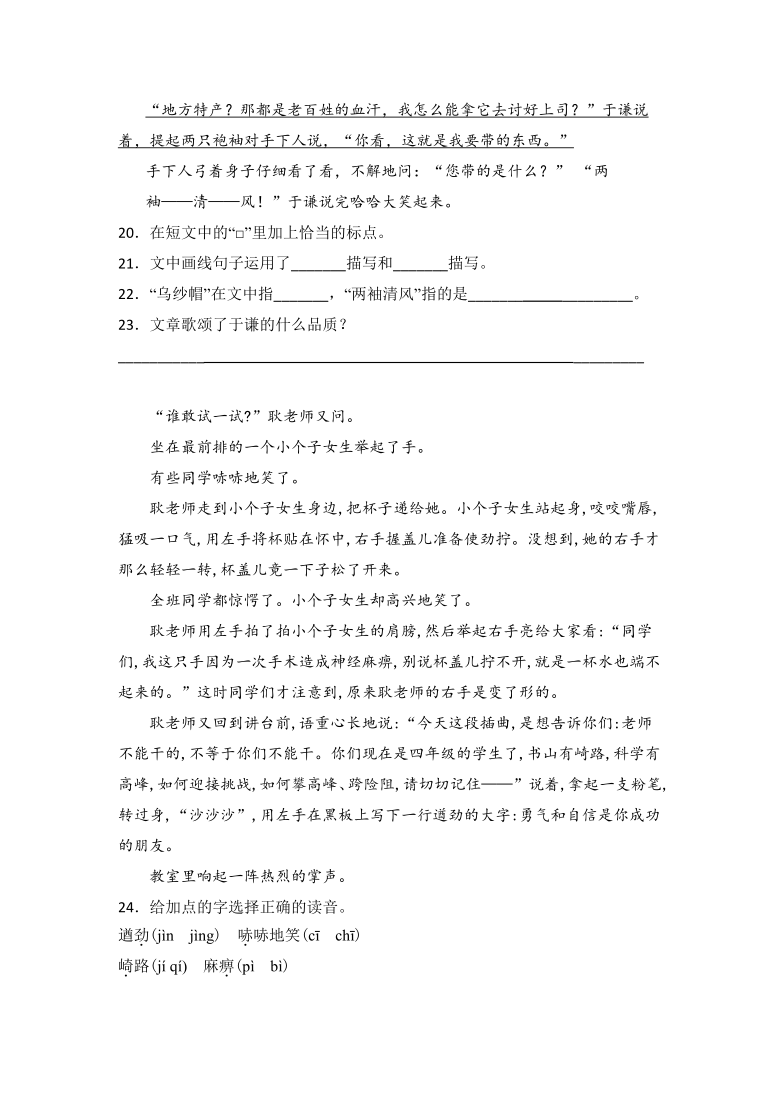 “地方特产？那都是老百姓的血汗，我怎么能拿它去讨好上司？”于谦说
着，提起两只袍袖对手下人说，“你看，这就是我要带的东西。”
手下人弓着身子仔细看了看，不解地问：“您带的是什么？” “两
袖——清——风！”于谦说完哈哈大笑起来。
20．在短文中的“□”里加上恰当的标点。
21．文中画线句子运用了_______描写和_______描写。
22．“乌纱帽”在文中指_______，“两袖清风”指的是_____________________。
23．文章歌颂了于谦的什么品质？
___________________________________________________________________
“谁敢试一试?”耿老师又问。
坐在最前排的一个小个子女生举起了手。
有些同学哧哧地笑了。
耿老师走到小个子女生身边,把杯子递给她。小个子女生站起身,咬咬嘴唇,
猛吸一口气,用左手将杯贴在怀中,右手握盖儿准备使劲拧。没想到,她的右手才
那么轻轻一转,杯盖儿竟一下子松了开来。
全班同学都惊愕了。小个子女生却高兴地笑了。
耿老师用左手拍了拍小个子女生的肩膀,然后举起右手亮给大家看:“同学
们,我这只手因为一次手术造成神经麻痹,别说杯盖儿拧不开,就是一杯水也端不
起来的。”这时同学们才注意到,原来耿老师的右手是变了形的。
耿老师又回到讲台前,语重心长地说:“今天这段插曲,是想告诉你们:老师
不能干的,不等于你们不能干。你们现在是四年级的学生了,书山有崎路,科学有
高峰,如何迎接挑战,如何攀高峰、跨险阻,请切切记住——”说着,拿起一支粉笔,
转过身,“沙沙沙”,用左手在黑板上写下一行遒劲的大字:勇气和自信是你成功
的朋友。
教室里响起一阵热烈的掌声。
24．给加点的字选择正确的读音。
遒劲(jìn jìng) 哧哧地笑(cī chī)
崎路(jí qí) 麻痹(pì bì)